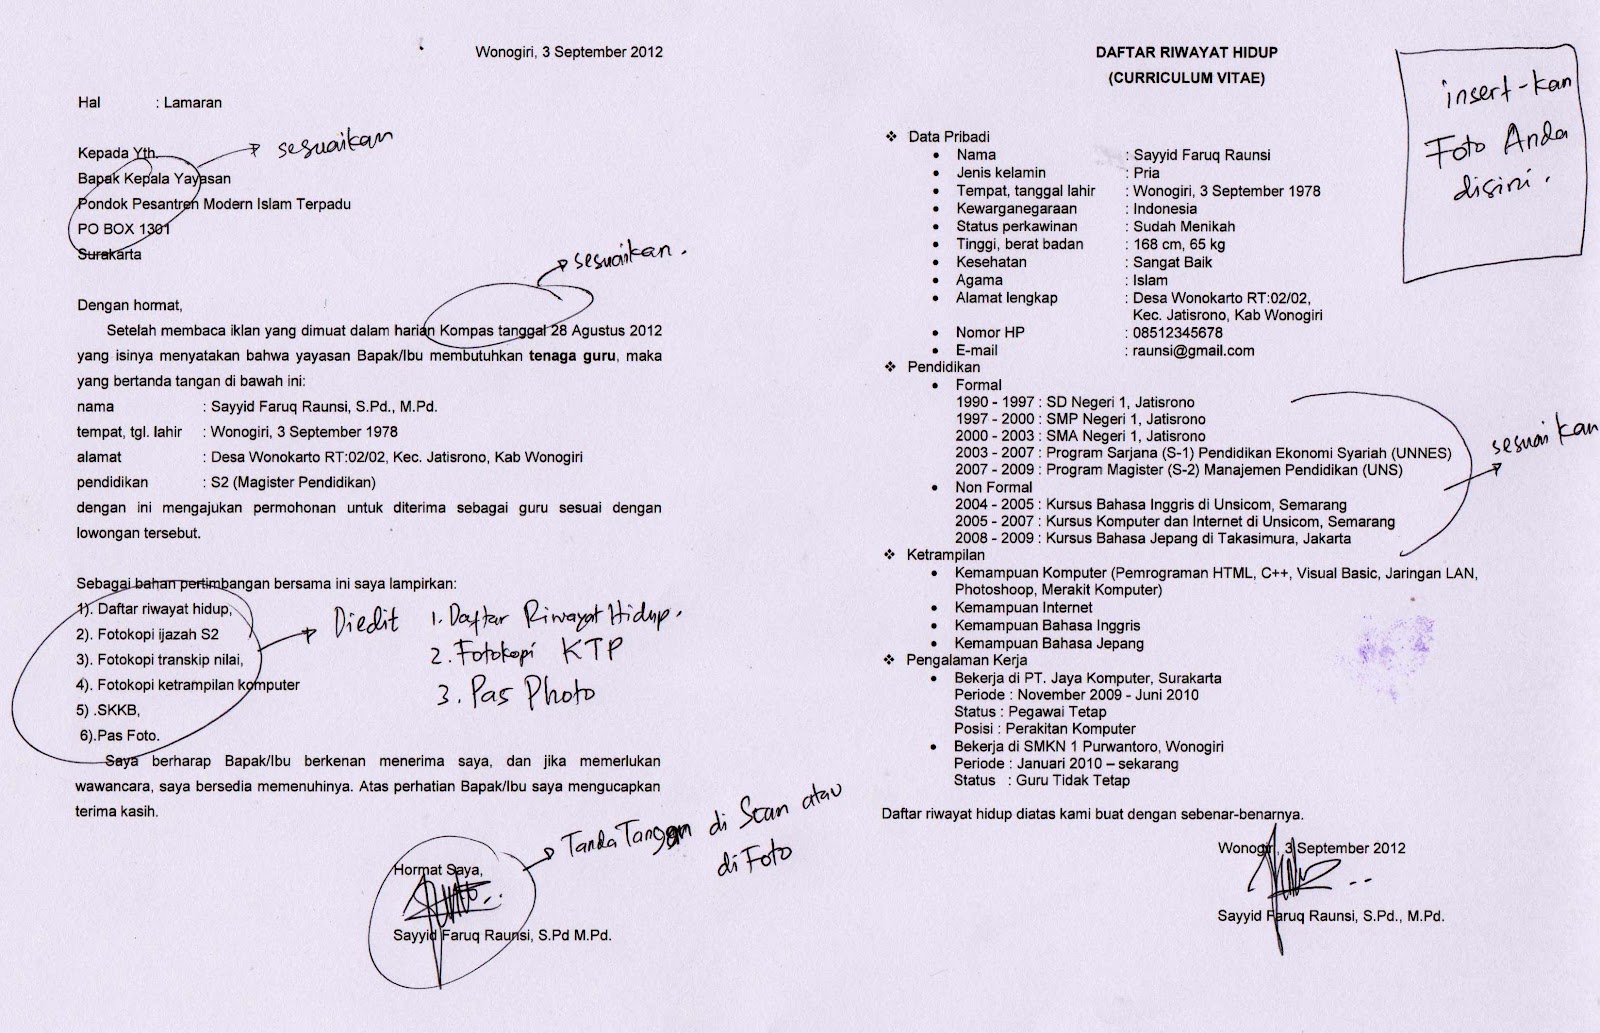 Wonogiri, 3 September 2012
Hal : Lamaran
Kepada Yth.
Bapak Kepala Yayasan
Pondok Pesantren Modern Islam Terpadu
PO BOX 1301
Surakarta
sesuaikan
sesuaikan.
Dengan hormat,
Setelah membaca iklan yang dimuat dalam harian Kompas tanggal 28 Agustus 2012
yang isinya menyatakan bahwa yayasan Bapak/Ibu membutuhkan tenaga guru, maka
yang bertanda tangan di bawah ini:
nama : Sayyid Faruq Raunsi, S.Pd., M.Pd.
tempat, tgl. lahir : Wonogiri, 3 September 1978
alamat : Desa Wonokarto RT:02/02, Kec. Jatisrono, Kab Wonogiri
pendidikan : S2 (Magister Pendidikan)
dengan ini mengajukan permohonan untuk diterima sebagai guru sesuai dengan
lowongan tersebut.
Sebagai bahan pertimbangan bersama ini saya lampirkan:
1). Daftar riwayat hidup,
2). Fotokopi ijazah S2
3). Fotokopi transkip nilai,
4). Fotokopi ketrampilan komputer
5) .SKKB,
6).Pas Foto.
Diedit 1. Daftar Riwayat Hidup.
2. Fotokopi KTP
3. Pas Photo
Saya berharap Bapak/Ibu berkenan menerima saya, dan jika memerlukan
wawancara, saya bersedia memenuhinya. Atas perhatian Bapak/Ibu saya mengucapkan
terima kasih.
Hormat Saya,
Sayyid Faruq Raunsi, S.Pd M.Pd.
Tanda Tangan di Scan atau
di Foto
DAFTAR RIWAYAT HIDUP
(CURRICULUM VITAE)
insert-kan
Foto Anda
disini.
❖ Data Pribadi
• Nama : Sayyid Faruq Raunsi
• Jenis kelamin : Pria
• Tempat, tanggal lahir : Wonogiri, 3 September 1978
• Kewarganegaraan : Indonesia
• Status perkawinan : Sudah Menikah
• Tinggi, berat badan : 168 cm, 65 kg
• Kesehatan : Sangat Baik
• Agama : Islam
• Alamat lengkap : Desa Wonokarto RT:02/02,
Kec. Jatisrono, Kab Wonogiri
• Nomor HP : 08512345678
• E-mail : raunsi@gmail.com
❖ Pendidikan
• Formal
1990 - 1997 : SD Negeri 1, Jatisrono
1997 - 2000 : SMP Negeri 1, Jatisrono
2000 - 2003 : SMA Negeri 1, Jatisrono
2003 - 2007 : Program Sarjana (S-1) Pendidikan Ekonomi Syariah (UNNES)
2007 - 2009 : Program Magister (S-2) Manajemen Pendidikan (UNS)
• Non Formal
2004 - 2005 : Kursus Bahasa Inggris di Unsicom, Semarang
2005 - 2007 : Kursus Komputer dan Internet di Unsicom, Semarang
2008 - 2009 : Kursus Bahasa Jepang di Takasimura, Jakarta
sesuaikan
❖ Ketrampilan
• Kemampuan Komputer (Pemrograman HTML, C++, Visual Basic, Jaringan LAN,
Photoshoop, Merakit Komputer)
• Kemampuan Internet
• Kemampuan Bahasa Inggris
• Kemampuan Bahasa Jepang
❖ Pengalaman Kerja
• Bekerja di PT. Jaya Komputer, Surakarta
Periode : November 2009 - Juni 2010
Status : Pegawai Tetap
Posisi : Perakitan Komputer
• Bekerja di SMKN 1 Purwantoro, Wonogiri
Periode : Januari 2010 – sekarang
Status : Guru Tidak Tetap
Daftar riwayat hidup diatas kami buat dengan sebenar-benarnya.
Wonogiri, 3 September 2012
Sayyid Faruq Raunsi, S.Pd., M.Pd.